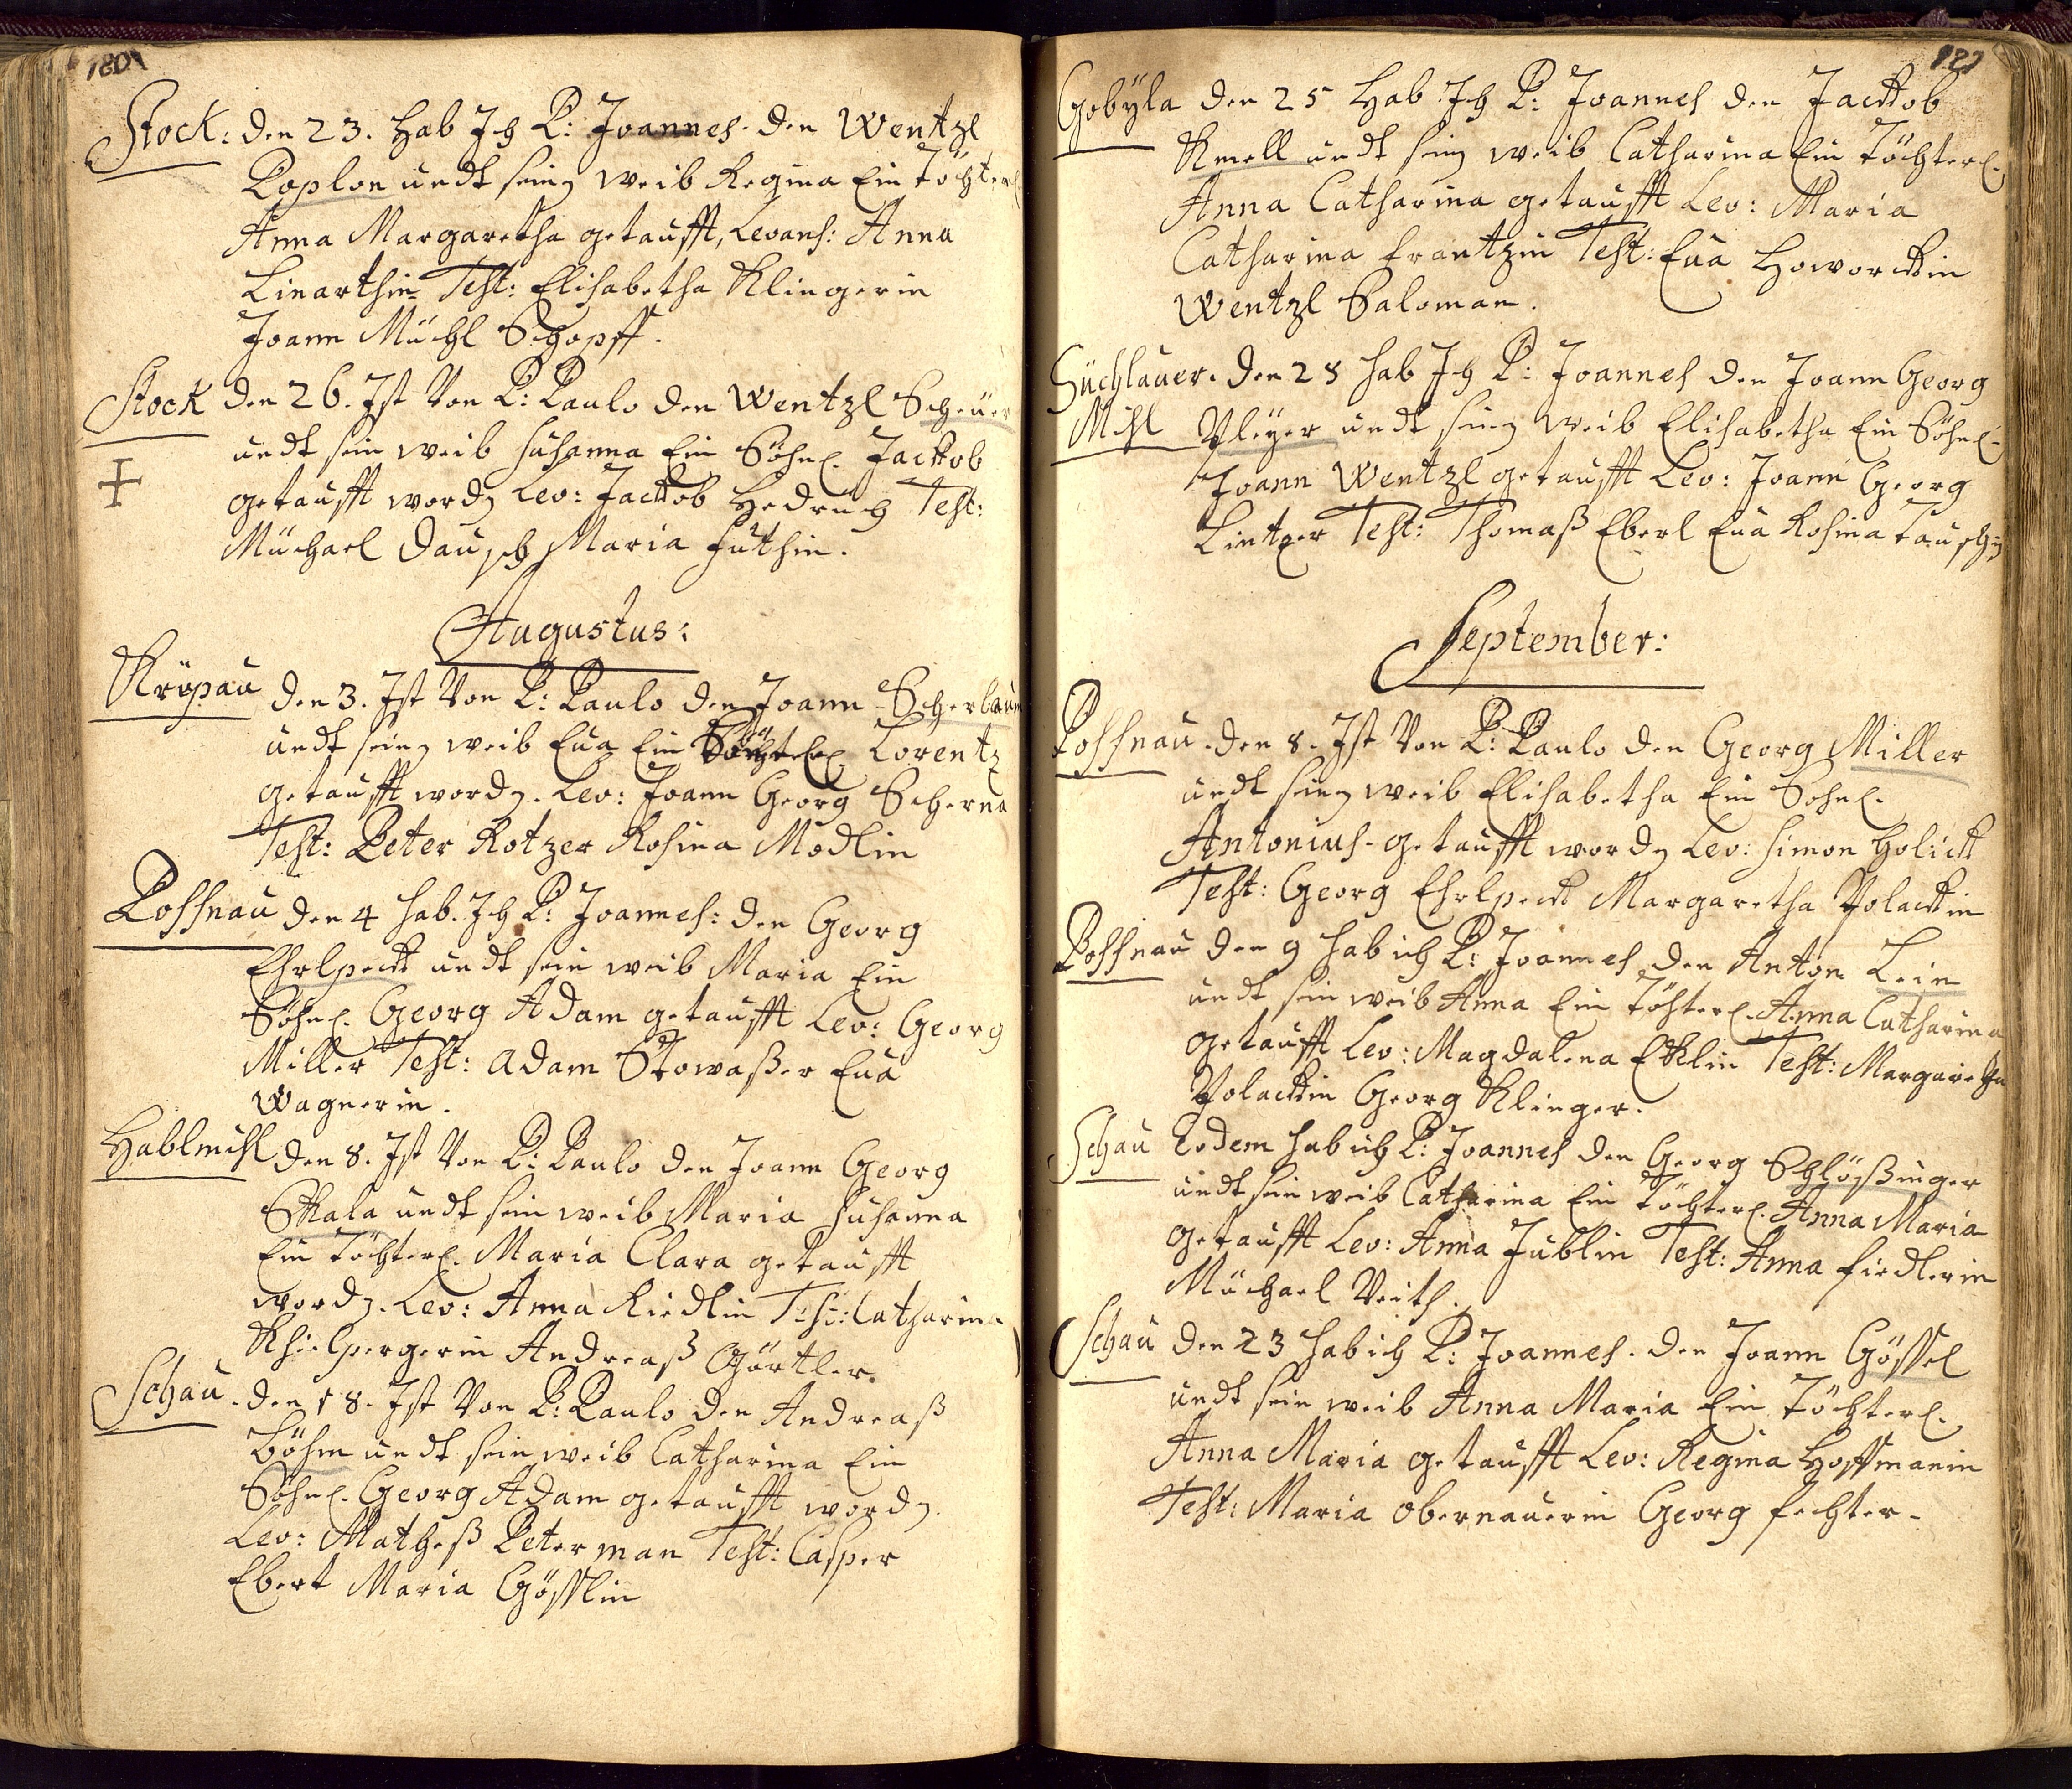 180
Stock: den 23. Hab Ich P: Joannes den Wentzl
Poplon undt seing weib Regina Ein Töchterl
Anna Margaretha getaufft, Levans: Anna
Linarthin Test: Elisabetha Klingerin
Joann Müchl Schopff.
Stock den 26. Ist Von P: Paulo den Wentzl Scheuer
undt sein weib Susanna Ein Söhnl. Jackob
getaufft wordn Lev: Jackob Hedrüch Test:
Müchael Dausch Maria Huthin.
Augustus:
Kröpau den 3. Ist Von P: Paulo den Joann Scherbaum
undt seing weib Eua Ein Lorentz
getaufft wordn. Lev: Joann Georg Scherna
Test: Peter Kotzer Rosina Modlin
Possnau den 4 hab Ich P: Joannes: den Georg
Ehrlpeckt undt sein weib Maria Ein
Söhnl. Georg Adam getaufft Lev: Georg
Miller Test: Adam Stowaßer Eua
Wagnerin.
Hablmihl den 8. Ist Von P: Paulo den Joann Georg
Skala undt sein weib Maria Susanna
Ein Töchterl. Maria Clara getaufft
wordn. Lev: Anna Riedlin Test: Catharina
Khielpergerin Andreaß Gärtler.
Schau. den 18. Ist Von P: Paulo den Andreaß
Böhm undt sein weib Catharina Ein
Söhnl. Georg Adam getaufft wordn.
Lev: Matheß Peterman Test: Casper
Ebert Maria Gösslin
181
Gobÿla den 25 Hab Ich P: Joannes den Jackob
Kmell undt seing weib Catharina Ein Töchterl.
Anna Catharina getaufft Lev: Maria
Catharina Frantzin Test: Eua Howorckin
Wentzl Saloman.
Süchlauer den 28 hab Ich P: Joannes den Joann Georg
Mihl Pleÿer undt seing weib Elisabetha Ein Söhnl.
Joann Wentzl getaufft Lev: Joann Georg
Lintzer Test: Thomaß Eberl Eua Rosina Tauschin
September:
Possnau. den 8. Ist Von P: Paulo den Georg Miller
undt seing weib Elisabetha Ein Sohnl.
Antonius getaufft wordn Lev: Simon Holick
Test: Georg Ehrlpeckt Margaretha Polackin
Possnau den 9 hab ich P: Joannes den Anton Lein
undt sein weib Anna Ein Töchterl. Anna Catharina
getaufft Lev: Magdalena Ecklin Test: Margaretha
Polackin Georg Klinger.
Schau Eodem hab ich P: Joannes den Georg Schlößinger
undt sein weib Catharina Ein Töchterl. Anna Maria
getaufft Lev: Anna Jüblin Test: Anna Fiedlerin
Müchael Veith.
Schau den 23 hab ich P: Joannes. den Joann Gössel
undt sein weib Anna Maria Ein Töchterl.
Anna Maria getaufft Lev: Regina Hoffmanin
Test: Maria Obernauerin Georg Fechter.